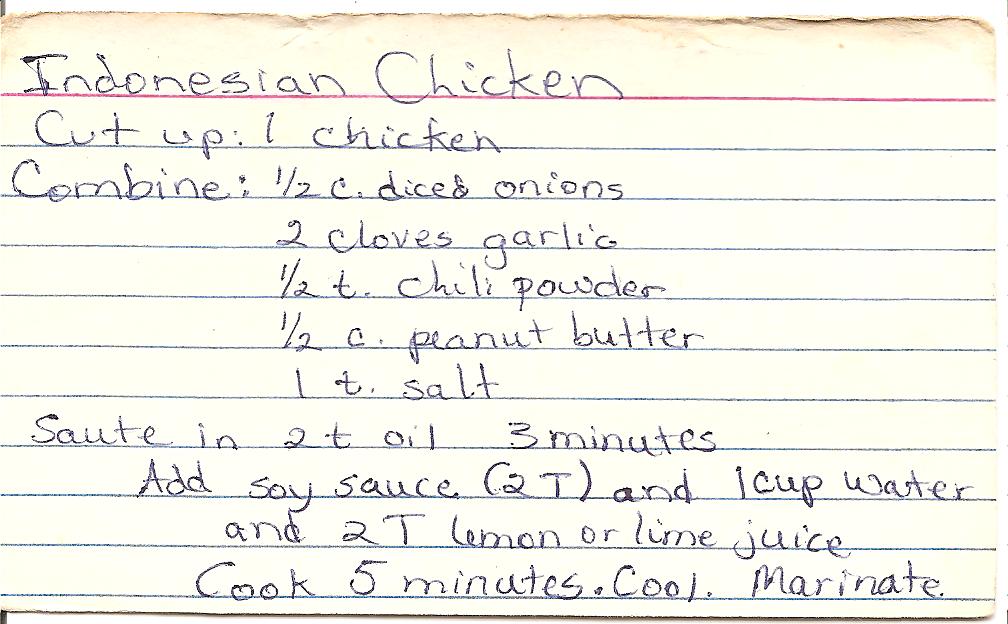 Indonesian Chicken
Cut up: 1 chicken
Combine: 1/2 c. diced onions
2 cloves garlic
1/2 t. chili powder
1/2 c. peanut butter
1 t. salt
Saute in 2 t oil 3 minutes
Add soy sauce (2 T) and 1 cup water
and 2 T lemon or lime juice
Cook 5 minutes. Cool. Marinate.